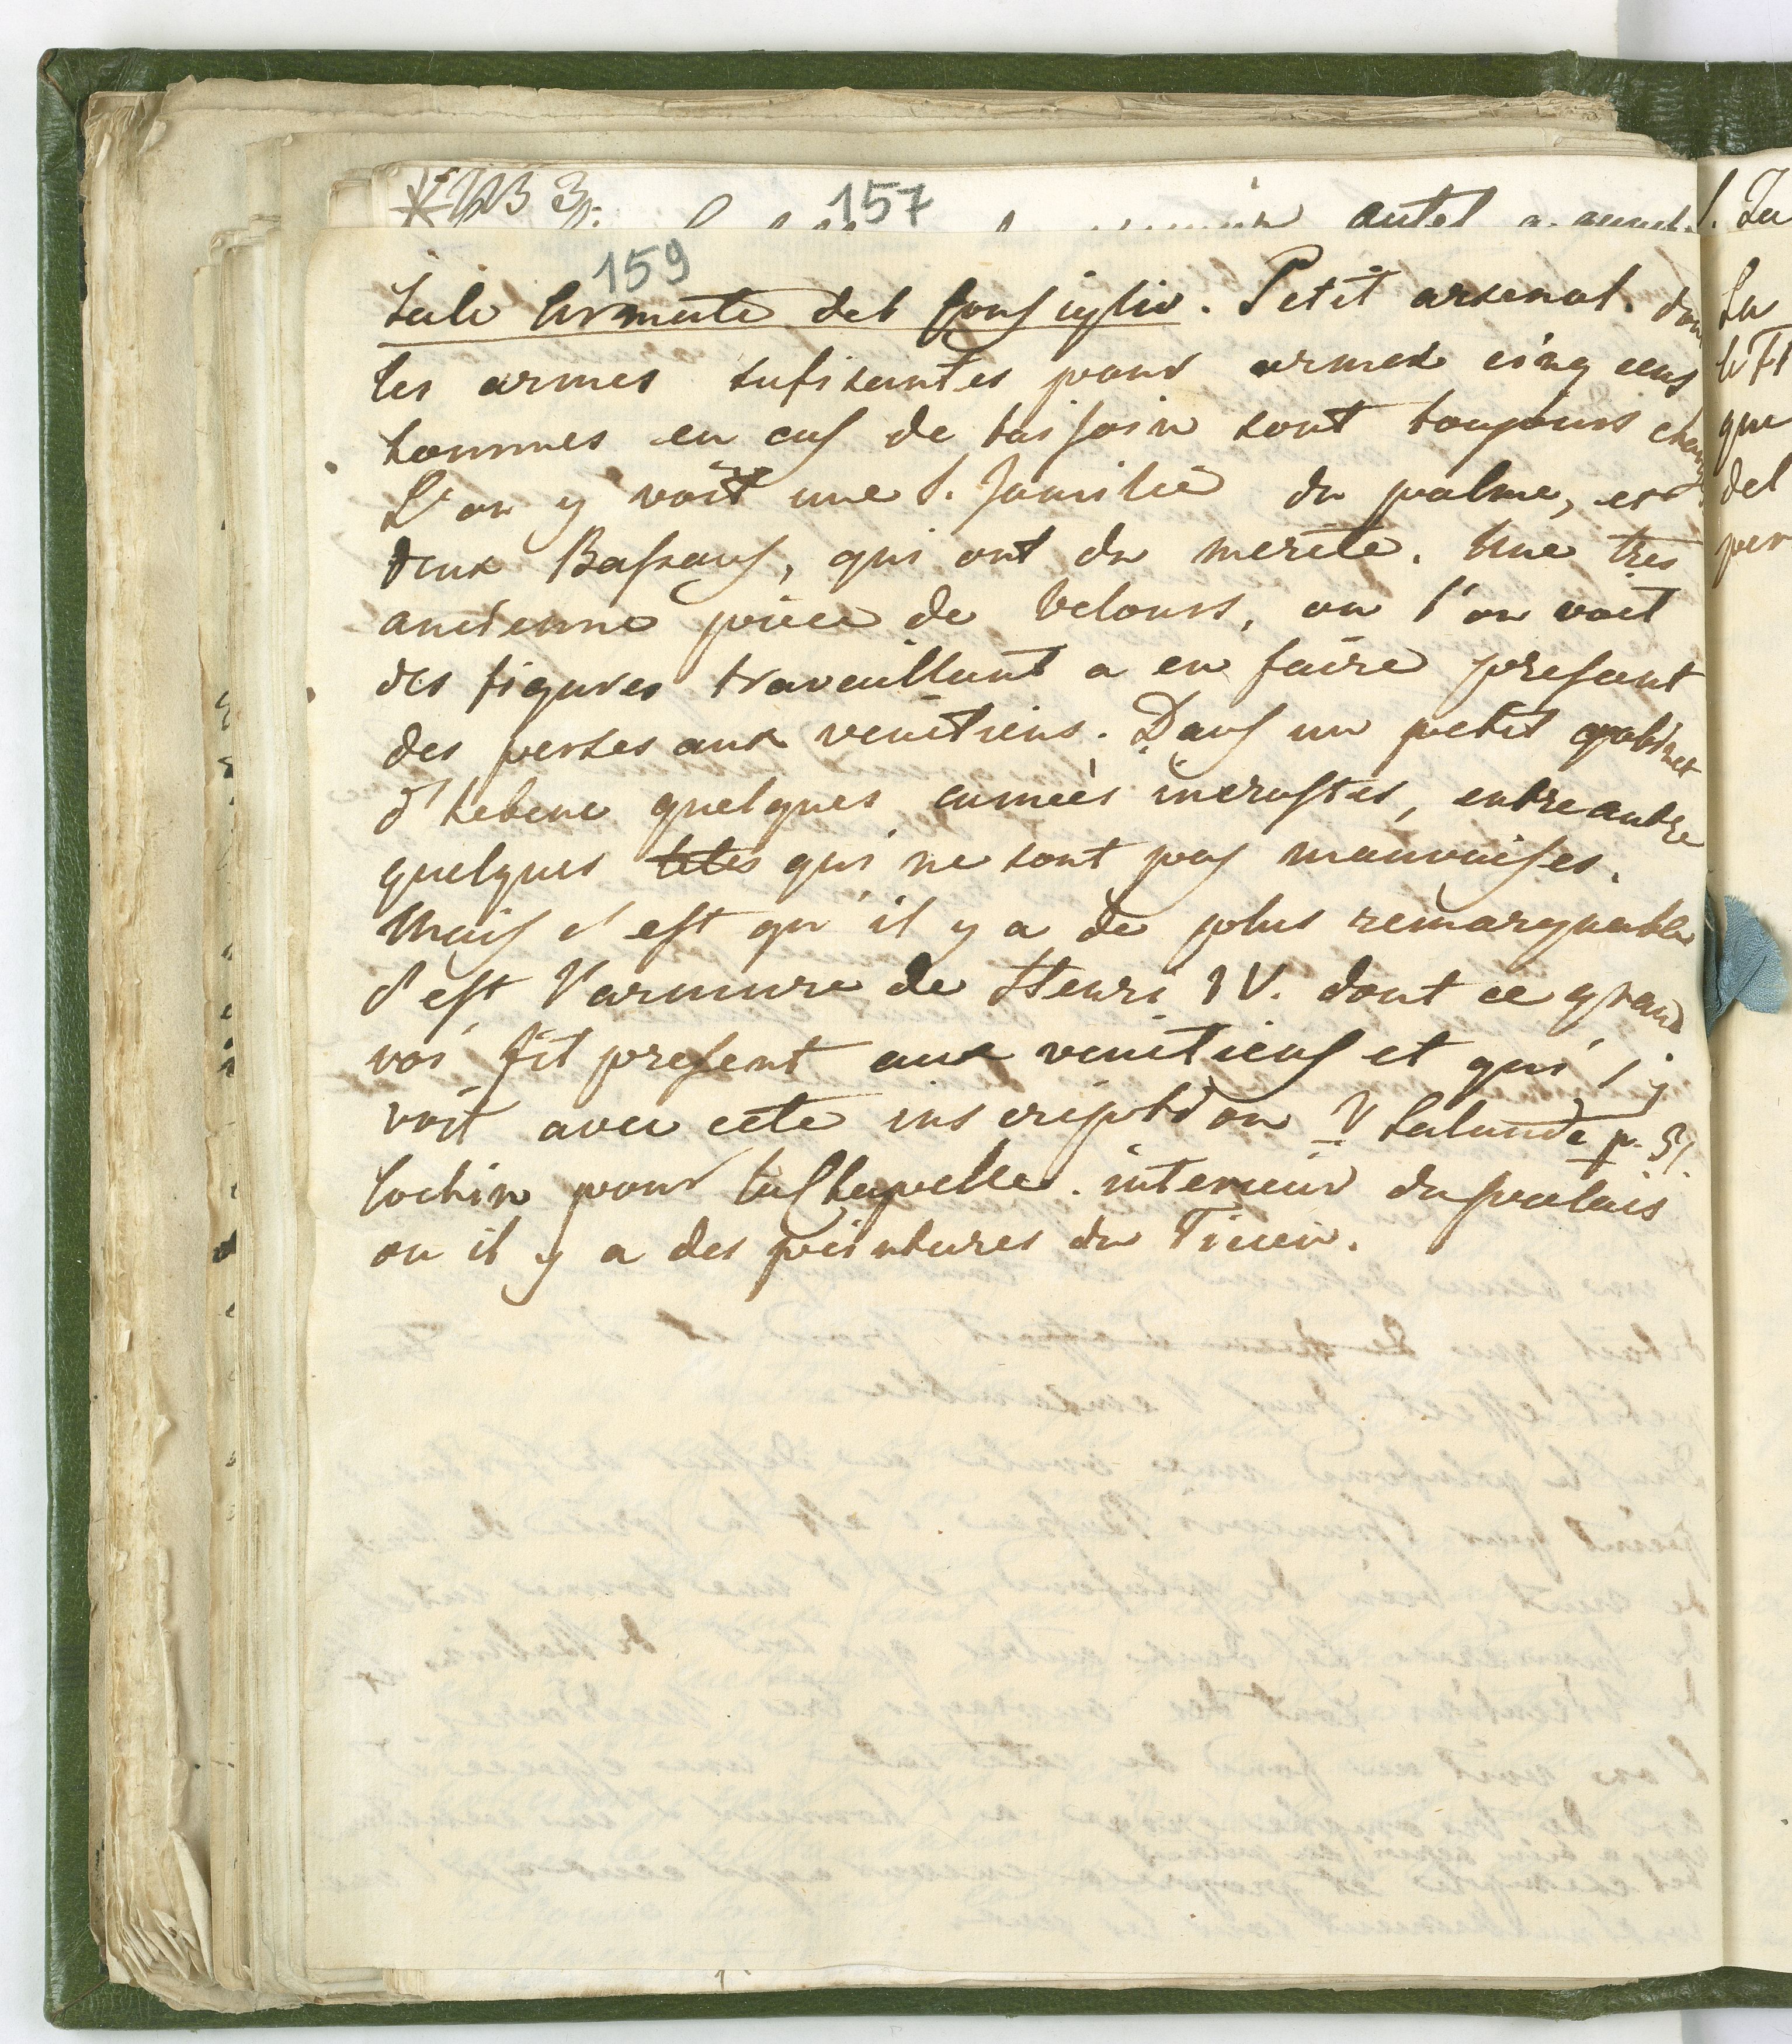 157
autel a
159
Sale Armate del Consiglio. Petit arsenal. don
les armes sufisantes pour armer cinq cens
hommes en cas de besoin sont toujours charg
L'on y voit une S. famille du palme, et
deux Bassans, qui ont du merite. Une tres
ancienne piece de velours, ou l'on voit
des figures travaillant a en faire present
des perses aux venitiens. Dans un petit cabinet
d'hebene quelques camées incrustés, entre autre
quelques têtes qui ne sont pas mauvaises.
Mais c'est qu'il y a de plus remarquable
c'est l'armure de Henri IV. dont ce grand
roi fit present aux venitiens et qui s'y
voit avec cete inscription V Lalande p. 31.
Cochin pour la Chapelle. interieur du palais
ou il y a des peintures du Ticien.
S. Ja
La
le Fl
que
del
per